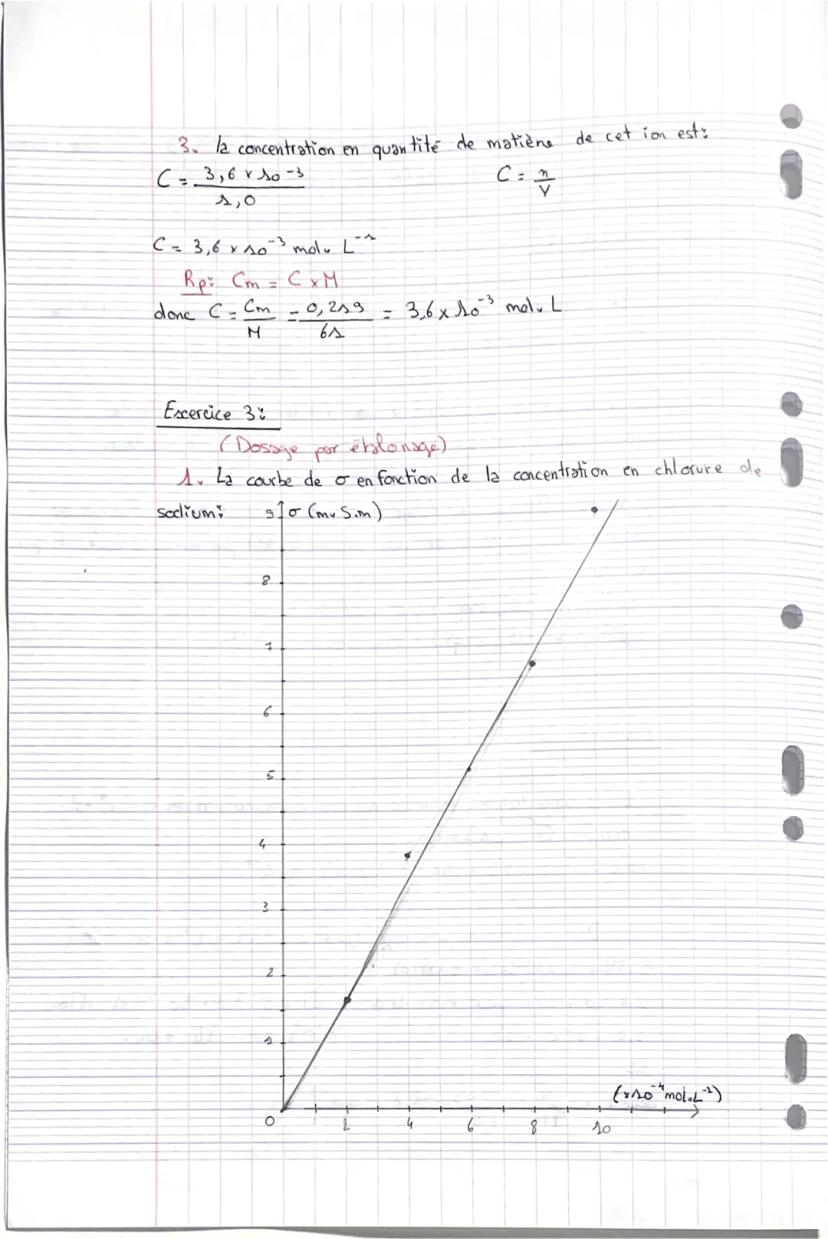 3. la concentration en quantité de matière de cet ion est:
C = 3,6 × 10-3 / 1,0
C = n / V
C = 3,6 × 10⁻³ mol. L⁻¹
Rp: Cm = C × M
donc C = Cm / M = 0,219 / 61 = 3,6 × 10⁻³ mol. L
Excercice 3:
(Dosage par étalonage)
1. La courbe de σ en fonction de la concentration en chlorure de
sodium:
9 σ (m. S.m)
8
7
6
5
4
3
2
1
(×10⁻⁴ mol.L⁻¹)
0 2 4 6 8 10